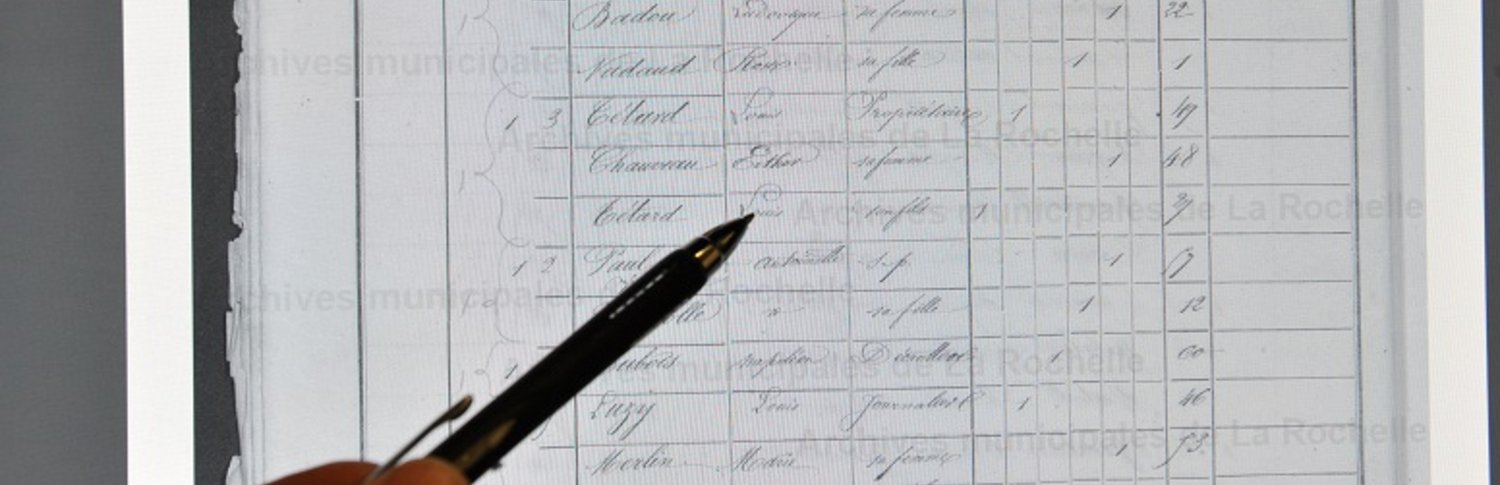 Badou Ludovique sa femme 1 22
Nadaud Rose sa fille 1 1
1 3 Télard Louis Propriétaire 1 49
1 Chauveau Esther sa femme 1 48
Télard Louis son fils 1
1 2 Paul antoinette s-p 1
sa fille 1 12
1 Napoléon 1 60
Luzy Louis Journalier 1 46
Merlin Marie sa femme 1 53
Archives municipales de La Rochelle
Archives municipales de La Rochelle
Archives municipales de La Rochelle
Archives municipales de La Rochelle
Archives municipales de La Rochelle
Archives municipales de La Rochelle